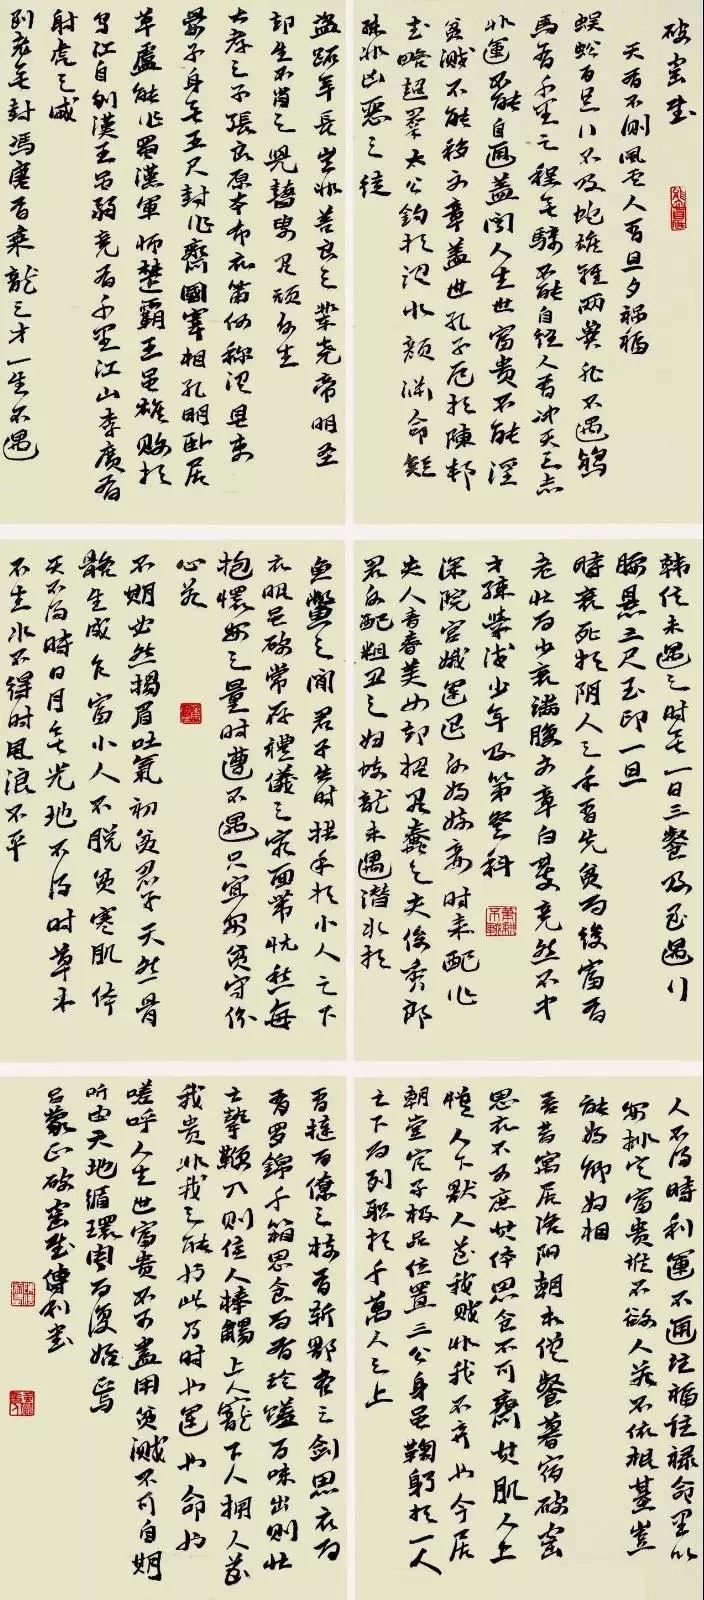 破窑赋
天有不测風雲人有旦夕祸福
蜈蚣百足行不及蛇雄雞两翼飛不過鸦
馬有千里之程無騎不能自往人有冲天之志
非運不能自通蓋闻人生世富貴不能淫
貧贱不能移文章蓋世孔子厄於陳邦
武略超羣太公钓於渭水颜渊命短
殊非凶惡之徒
盗跖年長豈非善良之輩尧帝明圣
却生不肖之兒瞽叟愚顽反生
大孝之子張良原本布衣萧何称谓县吏
晏子身無五尺封作齊國宰相孔明卧居
草廬能作蜀漢軍師楚霸王虽雄败於
乌江自刎漢王虽弱竟有千里江山李廣有
射虎之威
到老無封馮唐有乘龍之才一生不遇
韩信未遇之時無一日三餐及至遇行
腰懸三尺玉印一旦
時衰死於阴人之手有先貧而後富有
老壮而少衰满腹文章白发竟然不中
才疏學浅少年及第登科
深院宫娥運退反為妓妾时来配作
夫人青春美女却招愚蠢之夫俊秀郎
君反配粗丑之婦蛟龍未遇潜水於
魚鱉之間君子失時拱手於小人之下
衣服虽破常存禮儀之容面帶忧愁每
抱懷安之量时遭不遇只宜安貧守份
心若
不欺必然揚眉吐氣初貧君子天然骨
骼生成乍富小人不脱貧寒肌体
天不得時日月無光地不得时草木
不生水不得时風浪不平
人不得時利運不通注福注禄命里已
安排定富貴谁不欲人若不依根基豈
能為卿為相
吾昔寓居洛阳朝求僧餐暮宿破窑
思衣不可遮其体思食不可濟其肌人上
憎人下厭人道我贱非我不弃也今居
朝堂官至極品位置三公身虽鞠躬於一人
之下而列职於千萬人之上
有撻百僚之杖有斩鄙吝之劍思衣而
有罗錦千箱思食而有珍饈百味出則壮
士執鞭入則佳人捧觴上人寵下人拥人道
我贵非我之能也此乃时也運也命也
嗟呼人生世富贵不可盡用貧贱不可自欺
听由天地循環周而復始焉
吕蒙正破窑赋